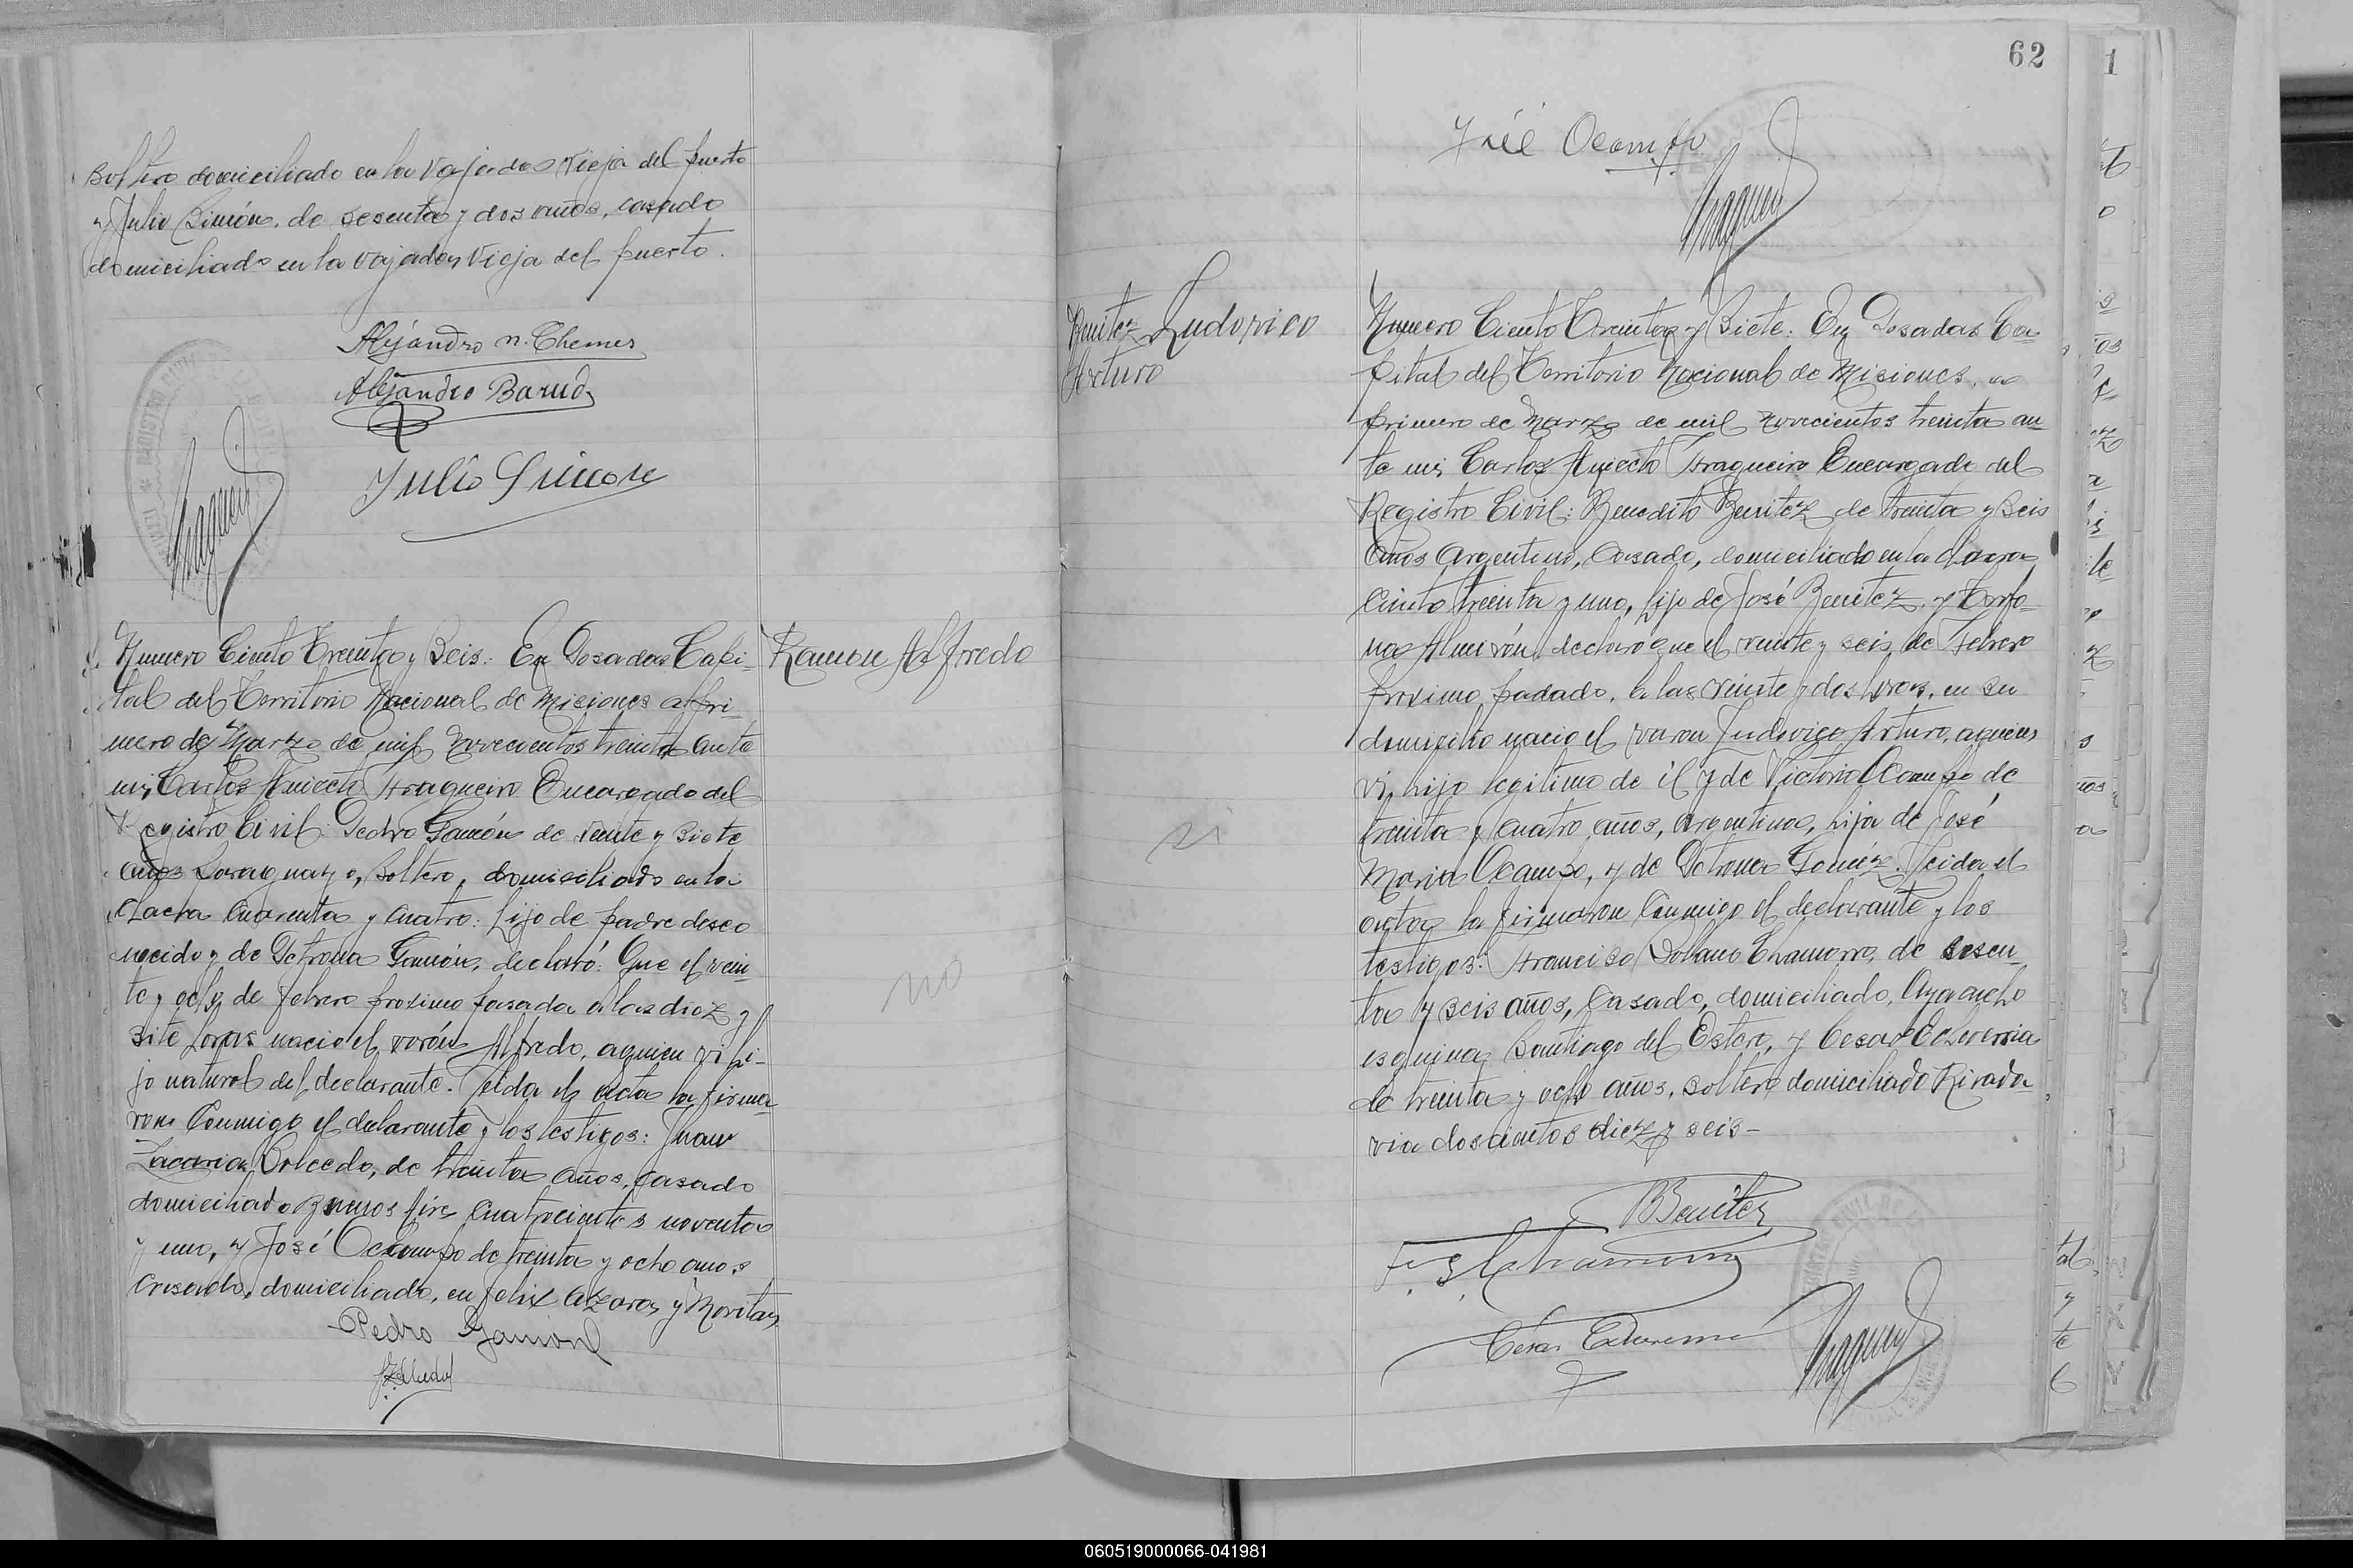 Soltero domiciliado en la Vajada Vieja del puerto
y Julio Simón, de sesenta y dos años, casado
domiciliado en la Vajada Vieja del puerto.
Alejandro n. Chemes
Alejandro Barud
Julio Simon
Numero Ciento Treinta y Seis: En Posadas Capi-
tal del Territorio Nacional de Misiones a pri-
mero de Marzo de mil novecientos treinta ante
mi, Carlos Aniecto Fragueiro Encargado del
Registro Civil: Pedro Gamón de veinte y siete
años Paraguayo, soltero, domiciliado en la
chacra cuarenta y cuatro: hijo de padre desco
nocido y de Petrona Gamón, declaró: Que el vein
te y ocho de febrero proximo pasado a las diez y
siete horas nacio el varón Alfredo, aquien vi hi-
jo natural del declarante. Leida el acta la firma
ron conmigo el declarante y los testigos: Juan
Zacarias Salcedo, de treinta años, casado
domiciliado Buenos Aires cuatrocientos noventa
y uno, y José Ocampo de treinta y ocho años
casado, domiciliado, en Felix Azara y Moritan,
Pedro Gamon
Ramon Alfredo
no
62
José Ocampo
Benitez Ludovico
Arturo
si
Numero Ciento Treinta y Siete: En Posadas Ca-
pital del Territorio Nacional de Misiones, a
primero de Marzo de mil novecientos treinta an
te mi, Carlos Aniecto Fragueiro Encargado del
Registro Civil: Benedito Benitez de treinta y seis
años argentino, casado, domiciliado en la chacra
ciento treinta y uno, hijo de José Benitez, y
Almirón, declaró que el veinte y seis de Febrero
proximo pasado, a las veinte y dos horas, en su
domicilio nacio el varon Ludovico Arturo, aquien
vi, hijo legitimo de él y de Victoria Ocampo de
treinta y cuatro años, argentina, hija de José
Maria Ocampo, y de Petrona Goméz. Leida el
acta la firmaron conmigo el declarante y los
testigos: Francisco Solano Chamorro, de sesen-
ta y seis años, casado, domiciliado, Ayacucho
esquina Santiago del Estero, y Cesar Echeverria
de treinta y ocho años, soltero domiciliado Rivada
via doscientos diez y seis-
B Benitez
F. S. Chamorro
César Echeverria
1
060519000066-041981